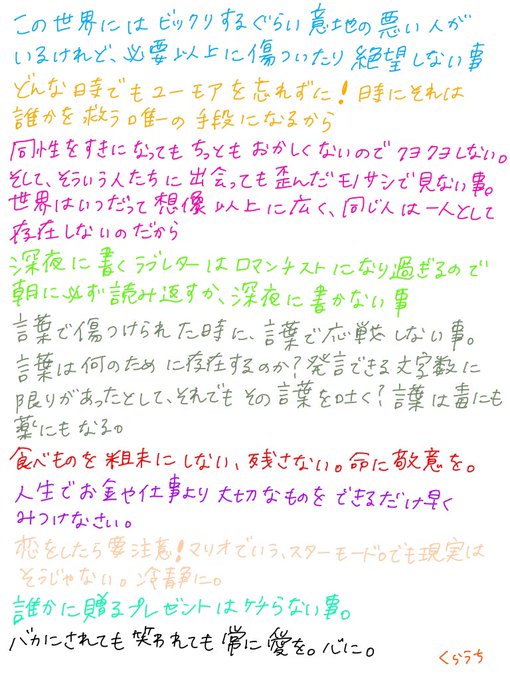 この世界にはビックリするぐらい意地の悪い人が
いるけれど、必要以上に傷ついたり絶望しない事
どんな時でもユーモアを忘れずに！時にそれは
誰かを救う唯一の手段になるから
同性をすきになってもちっともおかしくないのでクヨクヨしない。
そして、そういう人たちに出会っても歪んだモノサシで見ない事。
世界はいつだって想像以上に広く、同じ人は一人として
存在しないのだから
深夜に書くラブレターはロマンチストになり過ぎるので
朝に必ず読み返すか、深夜に書かない事
言葉で傷つけられた時に、言葉で応戦しない事。
言葉は何のために存在するのか？発言できる文字数に
限りがあったとして、それでもその言葉を吐く？言葉は毒にも
薬にもなる。
食べものを粗末にしない、残さない。命に敬意を。
人生でお金や仕事より大切なものをできるだけ早く
みつけなさい。
恋をしたら要注意！マリオでいう、スターモード。でも現実は
そうじゃない。冷静に。
誰かに贈るプレゼントはケチらない事。
バカにされても笑われても常に愛を。心に。
くらうち